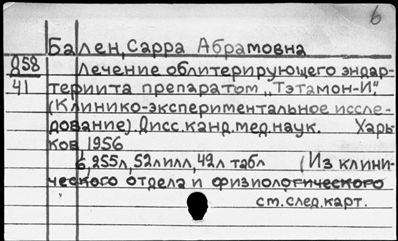 6
Бален, Сарра Абрамовна
858
41
Лечение облитерирующего эндар-
териита препаратом „Тэтамон-И“
(Клинико-экспериментальное иссле-
дование) Дисс. канд. мед. наук. Харь
ков 1956
6, 255л, 52лилл, 42л табл (Из клини-
ческого отдела и физиологического
см. след. карт.